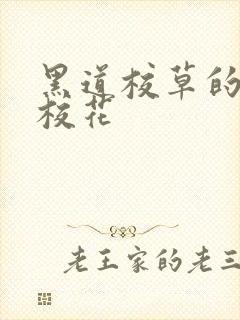 黑道校草的
校花
老王家的老三